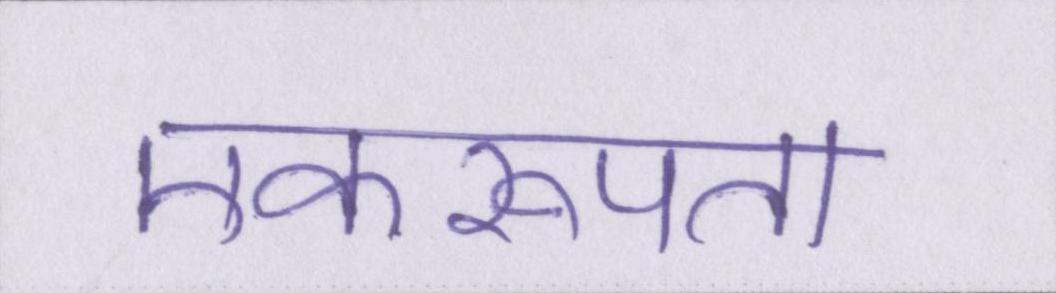 एकरूपता